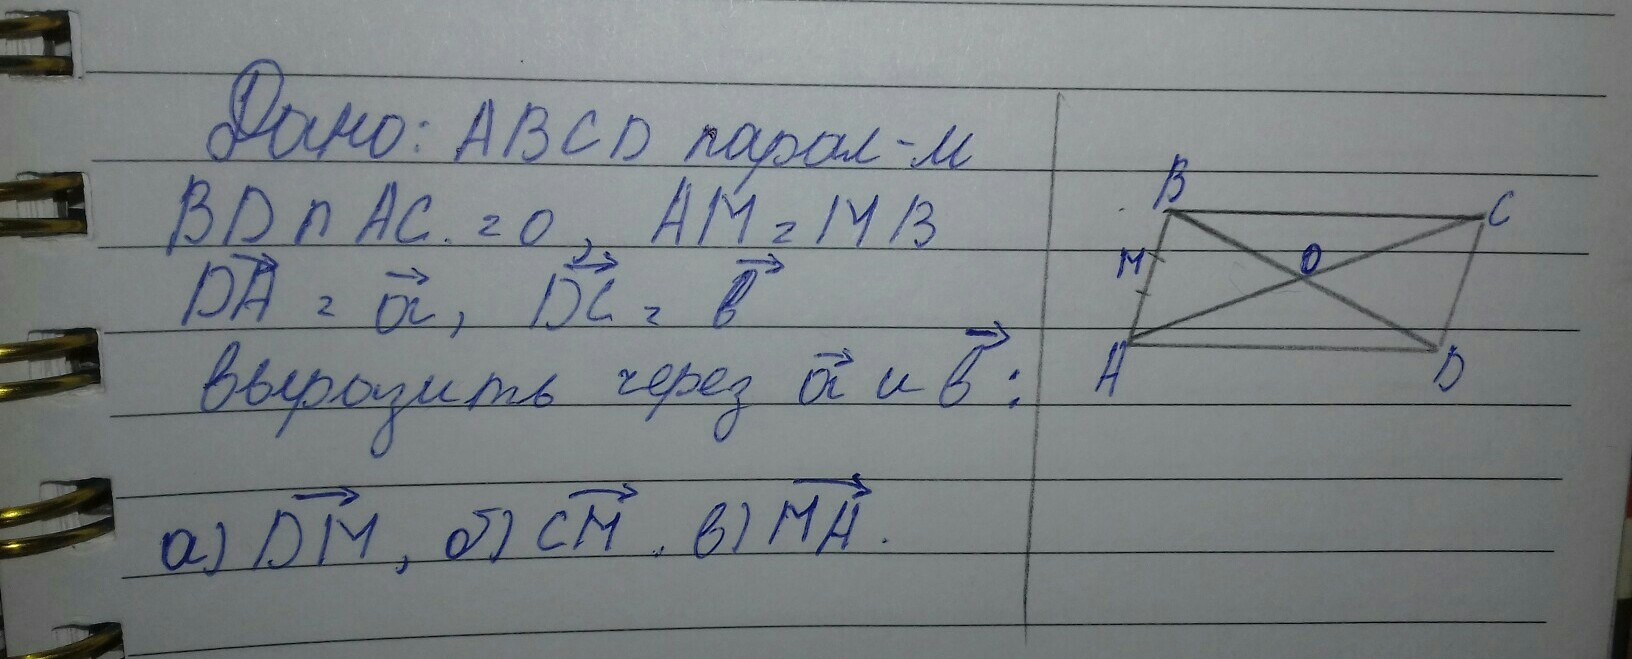 Дано: ABCD парал-м
BD ∩ AC. = O, AM = MB
DA = a, DC = b
выразить через a и b:
а) DM, б) CM. в) MA.
B
C
M
O
A
D